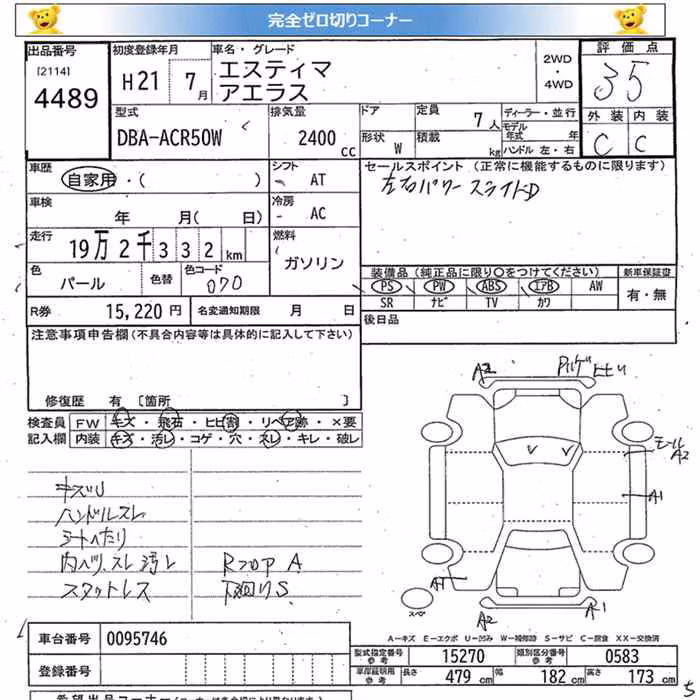 完全ゼロ切りコーナー
出品番号
[2114]
4489
初度登録年月
H21 7月
車名・グレード
エスティマ
アエラス
2WD
・
4WD
評価点
35
外装 内装
C C
型式
DBA-ACR50W
排気量
2400 cc
ドア
形状 W
定員 7人
積載 kg
ディーラー・並行
モデル年式 年
ハンドル 左・右
車歴
自家用・( )
シフト
AT
セールスポイント (正常に機能するものに限ります)
左右パワースライドD
車検
年 月( 日)
冷房
AC
走行
19万2千332km
燃料
ガソリン
色
パール
色替
色コード
070
装備品(純正品に限り○をつけてください)
新車保証書
PS PW ABS エアB AW
有・無
SR ナビ TV カワ
R券 15,220円
名変通知期限 月 日
後日品
注意事項申告欄(不具合内容等は具体的に記入して下さい)
修復歴 有 [箇所 ]
検査員 FW キズ・飛石・ヒビ割・リペア跡・×要
記入欄 内装 キズ・汚レ・コゲ・穴・スレ・キレ・破レ
キズU
ハンドルスレ
シートへたり
内ハリスレ汚レ
スタットレス
RフロアA
下廻りS
A2
ヒビ
モール
A2
A1
A1
スペア
A2
A1
A-キズ E-エクボ U-凹み W-補修跡 S-サビ C-腐食 XX-交換済
車台番号 0095746
登録番号
型式指定番号
参考
15270
類別区分番号
参考
0583
車庫証明用
参考
長さ 479 cm 幅 182 cm 高さ 173 cm